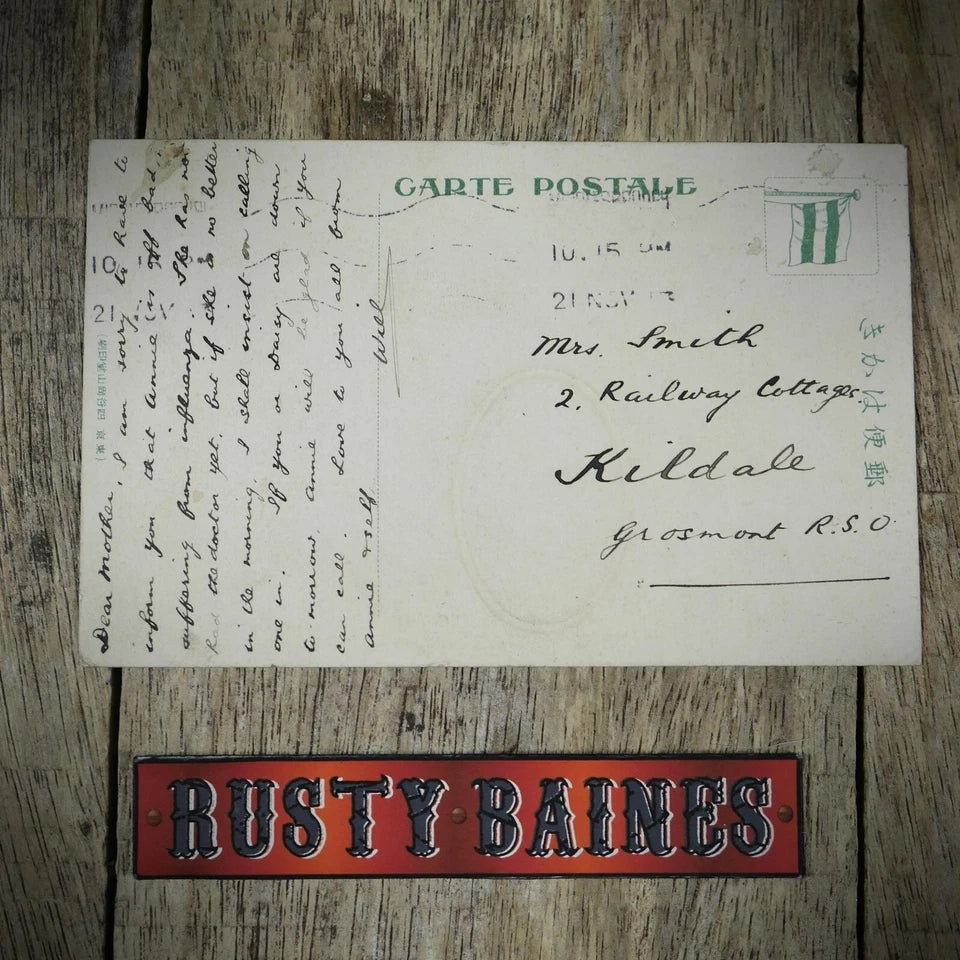 CARTE POSTALE
10.15 PM
21 NOV
Mrs. Smith
2, Railway Cottages.
Kildale
Grosmont R.S.O
きかは便郵
Dear Mother, I am sorry to have to
inform you that Annie is bad
suffering from influenza. She has not
had the doctor yet. but if she is no better
in the morning I shall insist on calling
one in. If you or Daisy are down
to-morrow Annie will be glad if you
can call. Love to you all from
Annie & self
Will
10
21
RUSTY BAINES